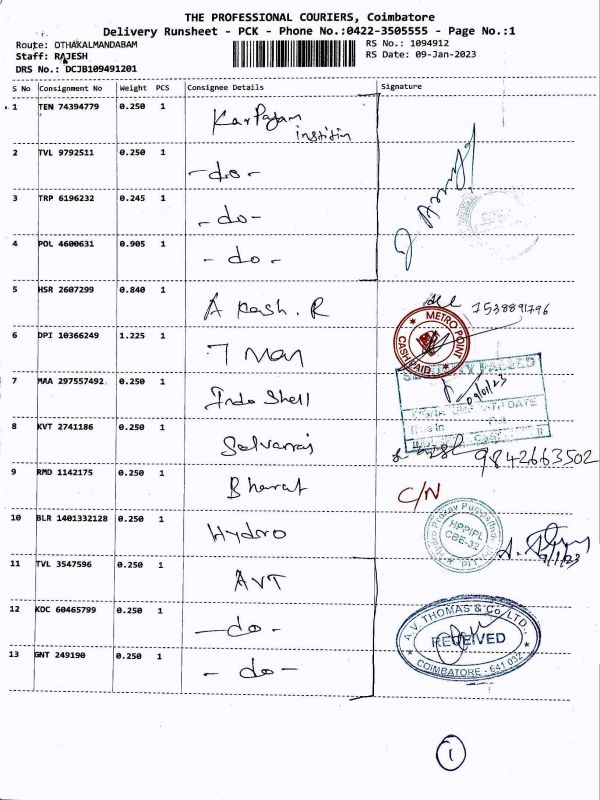 THE PROFESSIONAL COURIERS, Coimbatore
Delivery Runsheet - PCK - Phone No.:0422-3505555 - Page No.:1
Route: OTHAKALMANDABAM
RS No.: 1094912
Staff: RAJESH
RS Date: 09-Jan-2023
DRS No.: DCJB109491201
S No Consignment No Weight PCS Consignee Details Signature
1 TEN 74394779 0.250 1 Karpagam
2 TVL 9792511 0.250 1 -do-
3 TRP 6196232 0.245 1 -do-
4 POL 4600631 0.905 1 -do-
5 HSR 2607299 0.840 1 Akash.R 7538891796
6 DPI 10366249 1.225 1 METRO POINT CASH PAID
7 MAA 297557492 0.250 1 Indo Shell 09/01/23
8 KVT 2741186 0.250 1 Selvaraj 9842663502
9 RMD 1142175 0.250 1 Bharat C/N
10 BLR 1401332128 0.250 1 Hydro HPPIPL CBE-32 9/1/23
11 TVL 3547596 0.250 1 AVT
12 KDC 60465799 0.250 1 -do- A.V. THOMAS & Co LTD., RECEIVED COIMBATORE - 641 032
13 GNT 249190 0.250 1 -do-
1